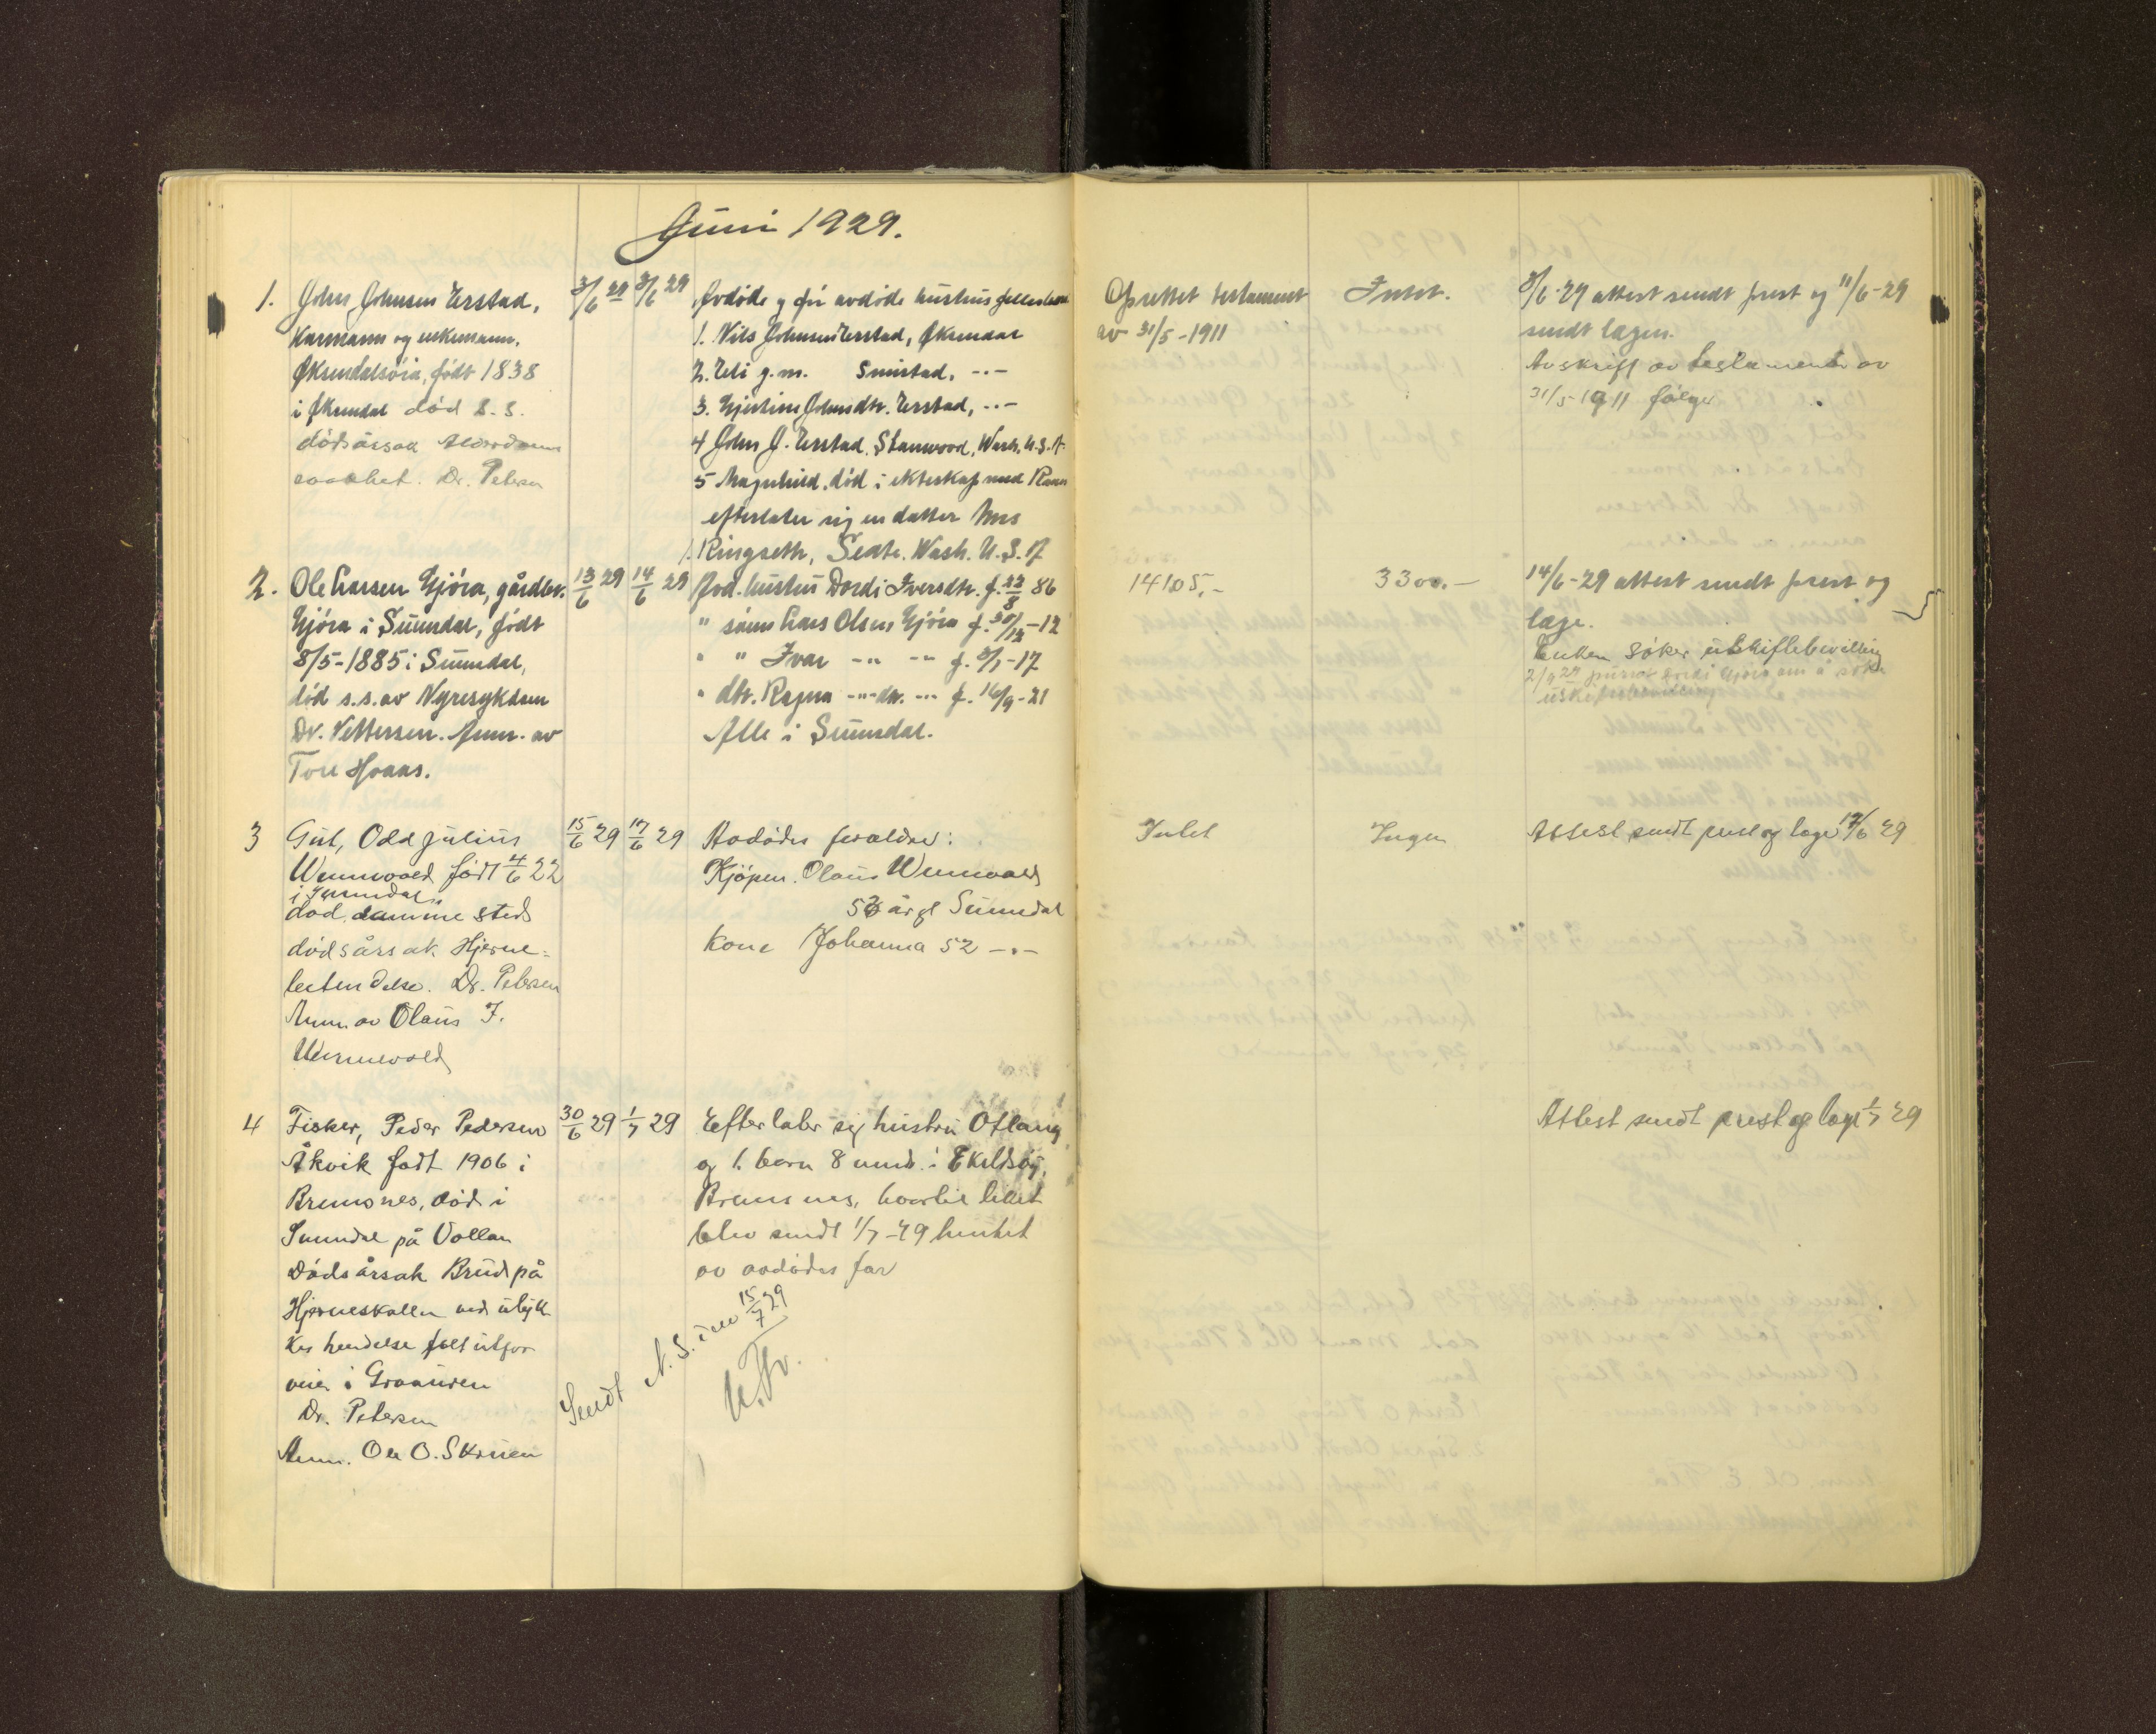 Juni 1929.
1. John Johnsen Erstad,
Kármann og enkemann,
Øksendalsøra, født 1838
i Øksendal død s.s.
dödsårsak Alderdoms
svakhet. Dr. Petersen
3/6 29 3/6 29
Avdøde og før avdøde hustrus fellesbarn
1. Nils Johnsen Erstad, Øksendal
2. Eli g.m. Smistad, -"-
3. Gjertine Johnsdtr. Erstad, -"-
4 John J. Erstad, Stanwood, Wash. U.S.A.
5 Magnhild, død i ekteskap med
efterlater sig en datter Mrs
Ringseth, Seatr. Wash. U.S.A
Oprettet testament
av 31/5-1911
Intet.
3/6-29 attest sendt prest og 11/6-29
sendt lægen.
Avskrift av testamente av
31/5-1911 følger
2. Ole Larsen Gjøra, gårdbr.
Gjøra i Sunndal, født
8/5-1885 i Sunndal,
død s.s. av Nyresykdom
Dr. Vettersen. Anm. av
Tore Hoaas.
13/6 29 14/6 29
Avd. hustru Dordi Iversdtr. f. 22/8 86
" sønn Lars Olsen Gjøra f. 30/12-12
" " Ivar -"- -"- f. 3/1-17
" dtr. Ragna -"- da. -"- f. 16/9-21
Alle i Sunndal.
14105,-
3300.-
14/6-29 attest sendt prest og
læge.
Enken søker uskiftebevilling
2/9 29 purret Dordi Gjøra om å søke
3 Gut, Odd Julius
Wennevold født 4/6 22
i Sunndal
død samme sted
dödsårsak Hjerne-
betendelse. Dr. Petersen
Anm. av Olaus I.
Wennevold
15/6 29 17/6 29
Avdødes foreldre:
Kjøpm. Olaus Wennevold
53 år gl Sunndal
Kone Johanna 52 -"-
Intet
Ingen
Attest sendt prest og læge 17/6 29
4 Fisker, Peder Pedersen
Åkvik født 1906 i
Bremsnes, død i
Sunndal på Vollan
Dødsårsak Brud på
Hjerneskallen ved ulyk
kes hendelse falt utfor
veien i Graauren
Dr. Petersen
Anm. Ole O. Skrøen
30/6 29 1/7 29
Efterlater sig hustru Otlaug
og 1. barn 8 mnd. i Ekildsøy,
Bremsnes, hvortil liket
blev sendt 1/7-29 hentet
av avdødes far
Sendt N.S. den 15/7 29
Attest sendt prest og læge 1/7 29